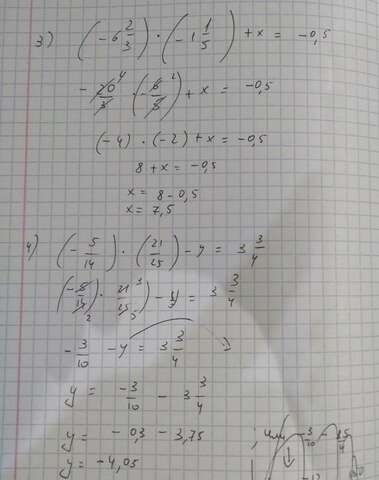 3) (-6 2/3) · (-1 1/5) + x = -0,5
- 20/3 4 · (- 6/5 2) + x = -0,5
(-4) · (-2) + x = -0,5
8 + x = -0,5
x = 8 - 0,5
x = 7,5
4) (- 5/14) · (21/25) - y = 3 3/4
(-5/14 2 · 21/25 3 5) - y = 3 3/4
- 3/10 - y = 3 3/4
y = -3/10 - 3 3/4
y = -0,3 - 3,75
y = -4,05